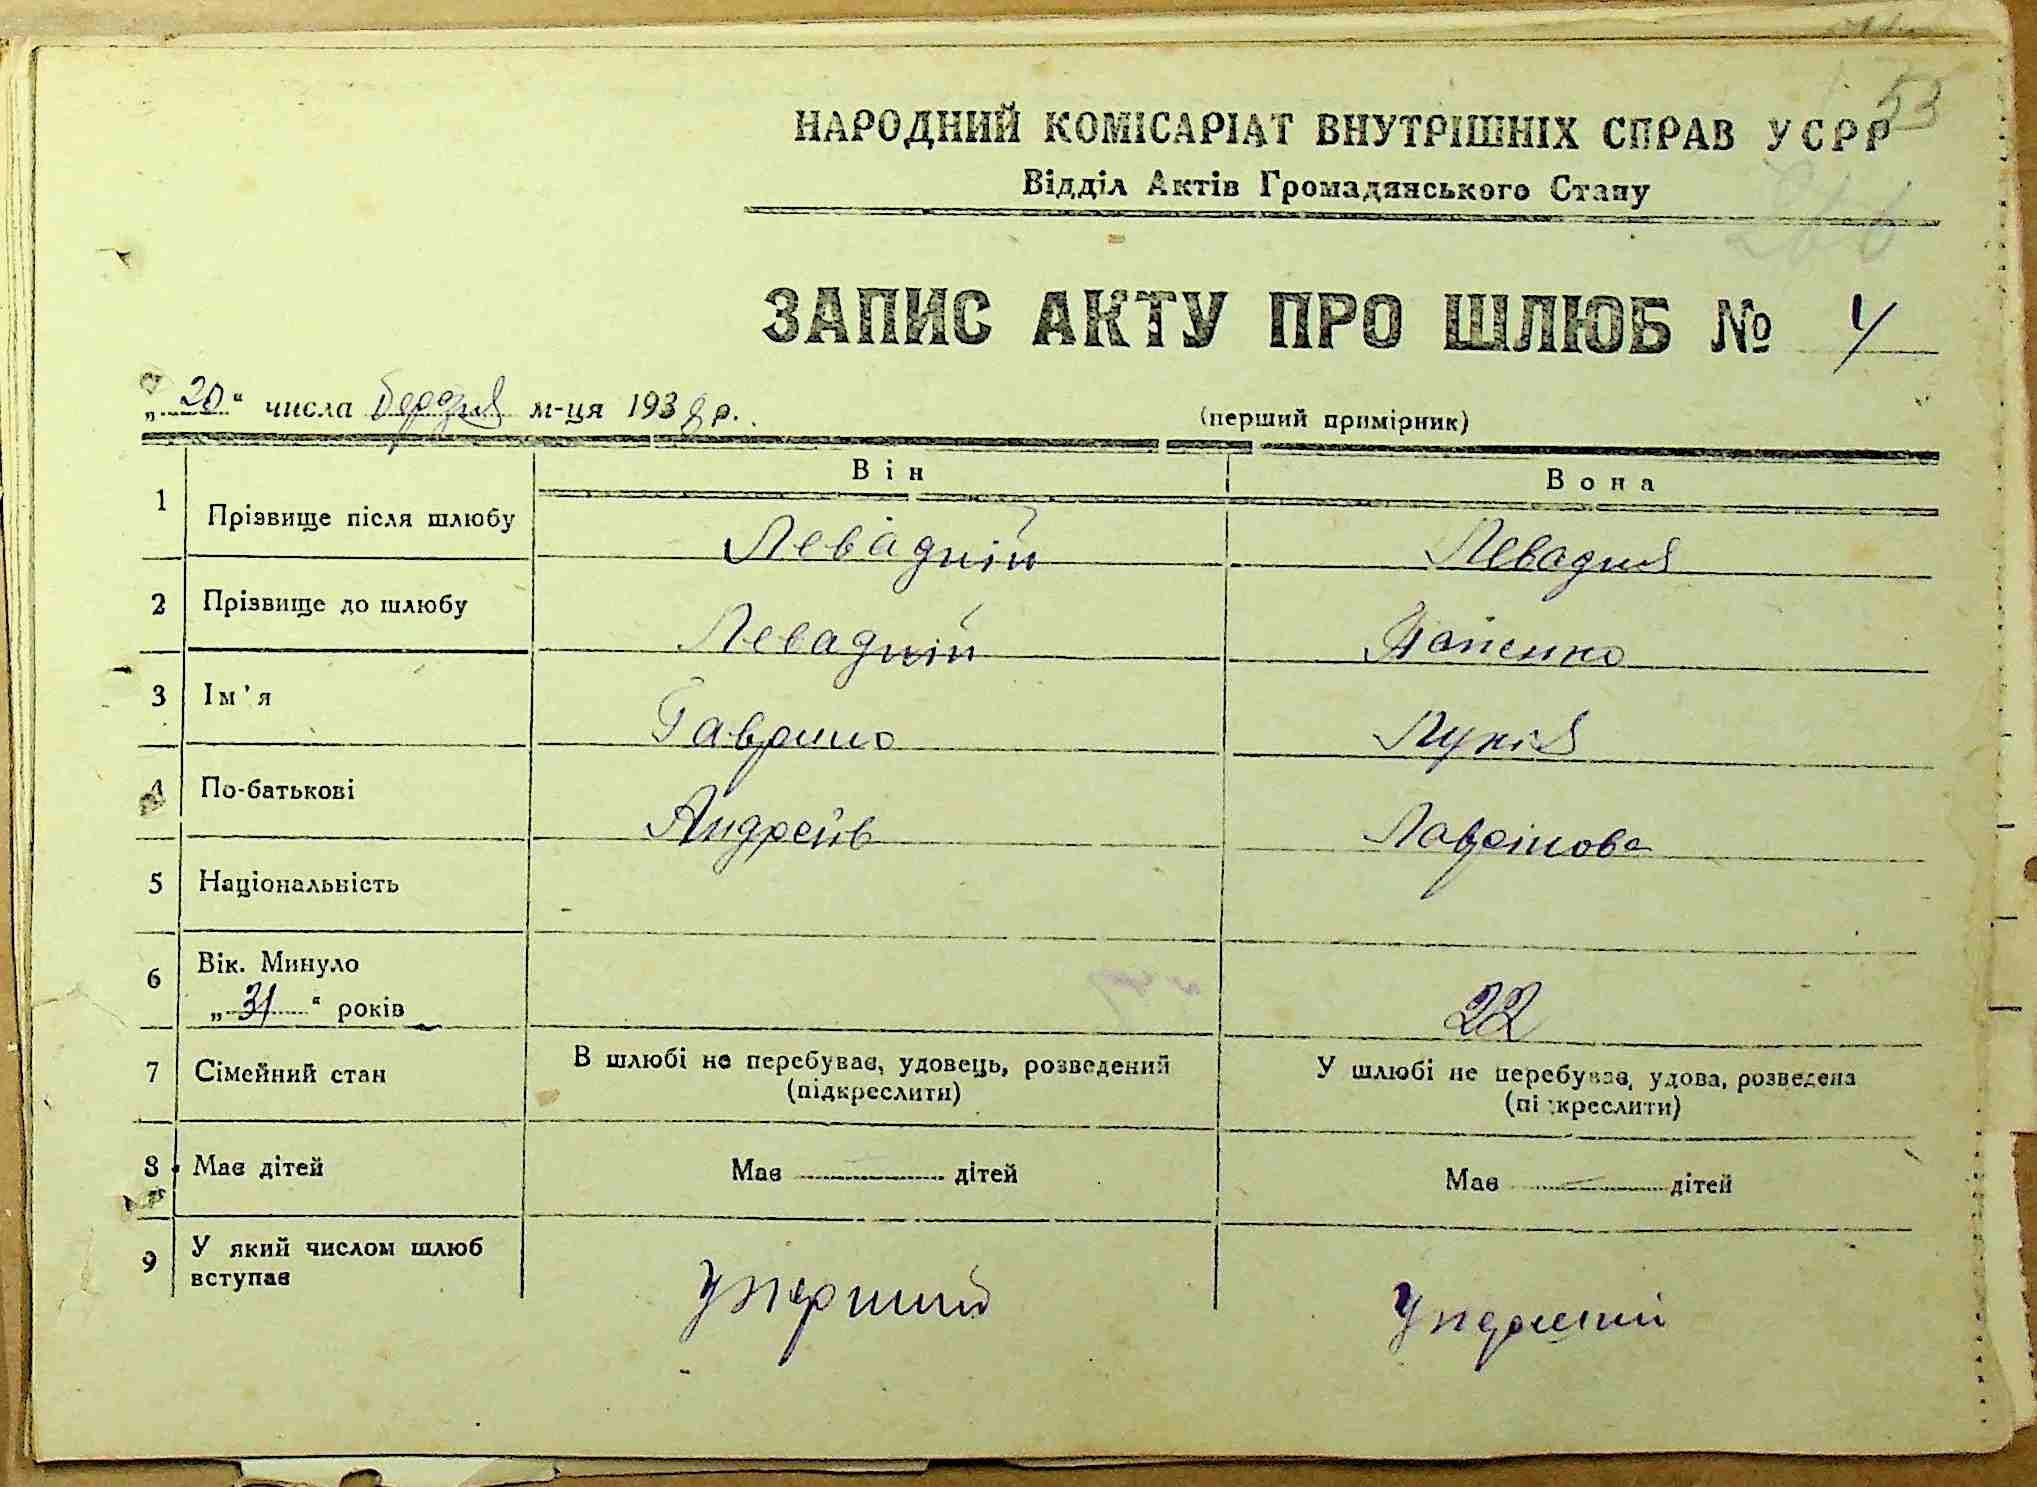 53
НАРОДНИЙ КОМІСАРІАТ ВНУТРІШНІХ СПРАВ УСРР
Відділ Актів Громадянського Стану
ЗАПИС АКТУ ПРО ШЛЮБ № 4
„20“ числа березня м-ця 1938 р.
(перший примірник)
Він Вона
1 Прізвище після шлюбу Левадній Левадня
2 Прізвище до шлюбу Левадній
3 Ім'я Гаврило Лукія
4 По-батькові Андреїв
5 Національність
6 Вік. Минуло
„31“ років 22
7 Сімейний стан В шлюбі не перебуває, удовець, розведений (підкреслити) У шлюбі не перебуває, удова, розведена (підкреслити)
8 Має дітей Має — дітей Має — дітей
9 У який числом шлюб вступає Уперший Уперший